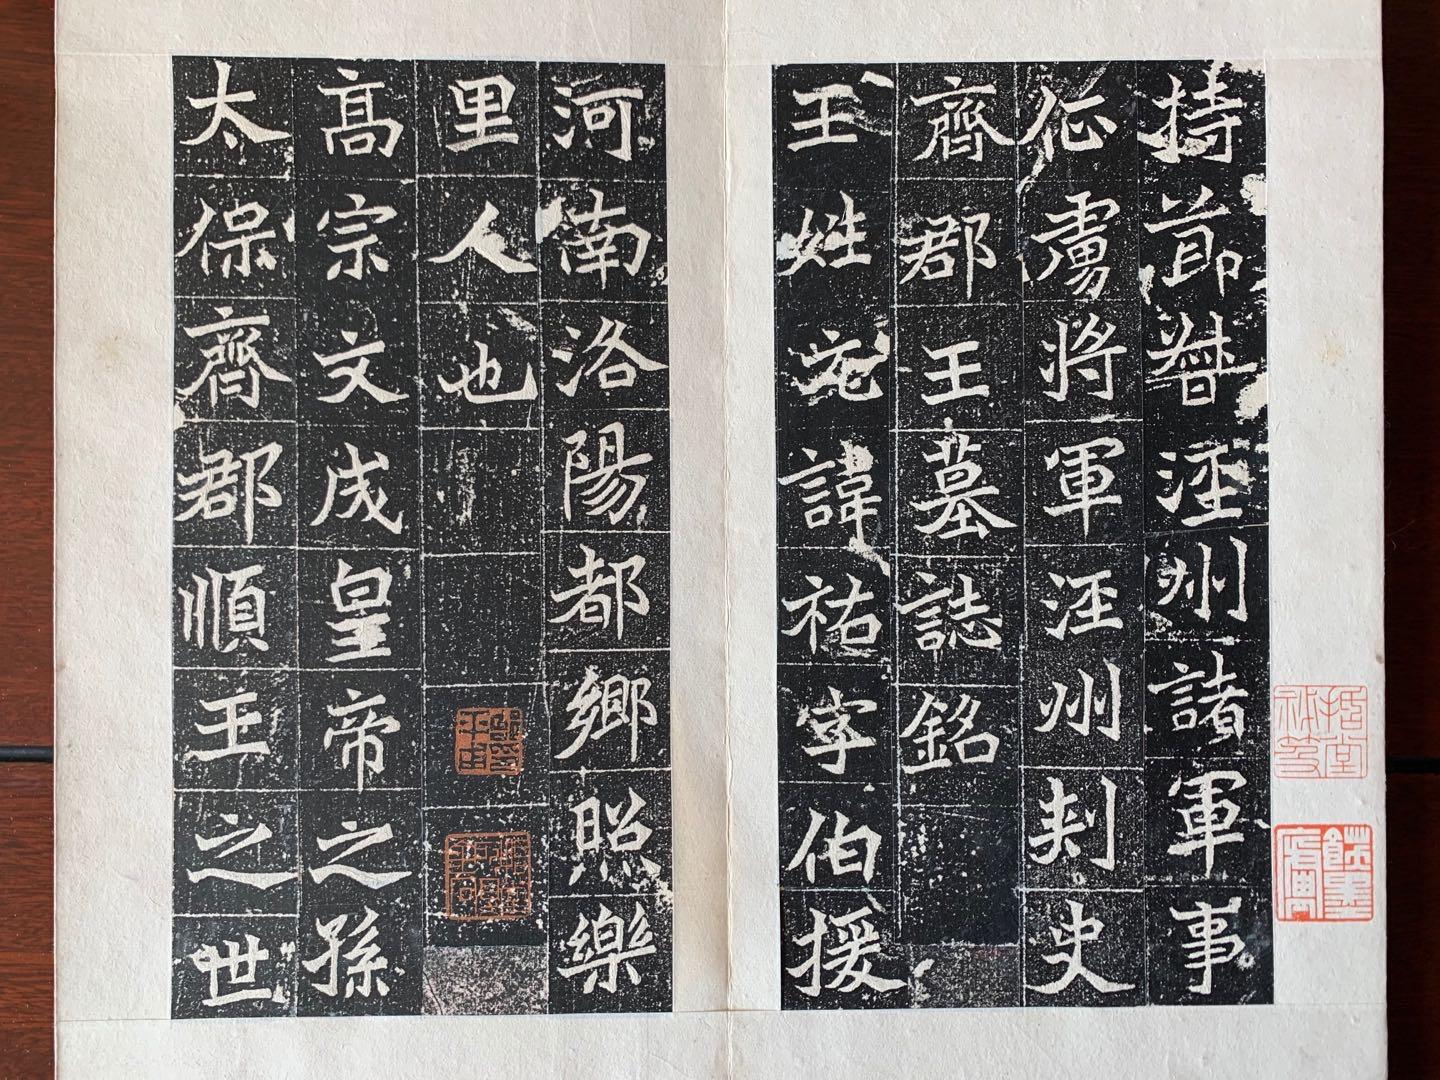 持節督涇州諸軍事
征虜將軍涇州刺史
齊郡王墓誌銘
王姓元諱祐字伯援
河南洛陽都鄉照樂
里人也
高宗文成皇帝之孫
太保齊郡順王之世